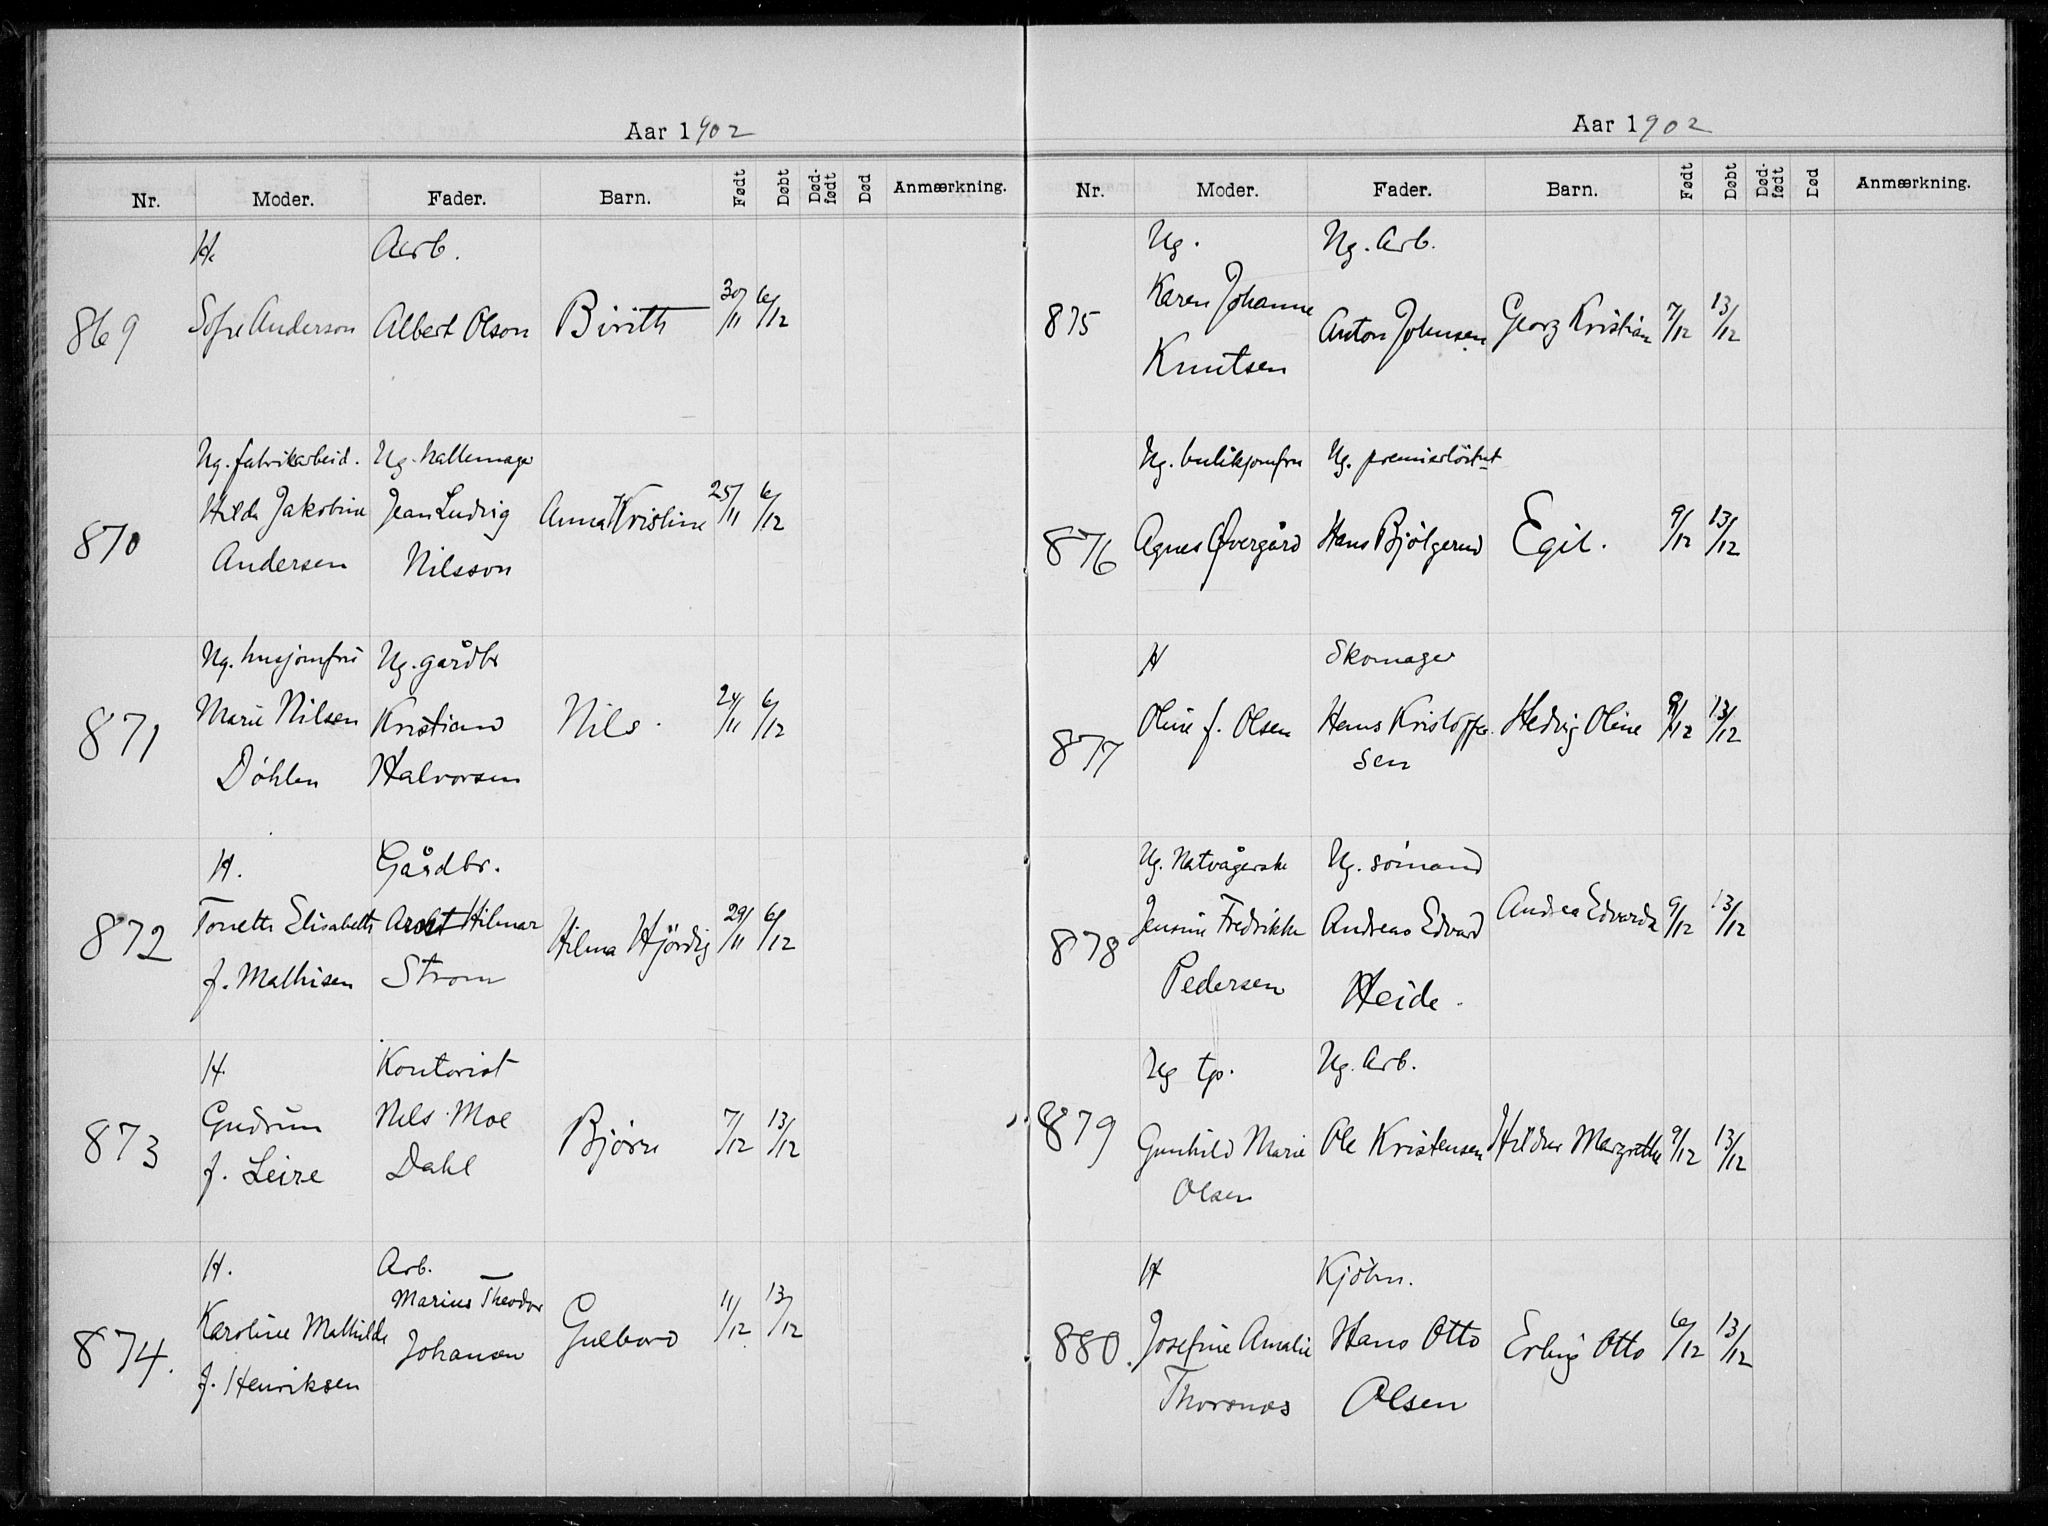 Aar 1902
Nr. Moder. Fader. Barn. Født Døbt Død-født Død Anmærkning.
H. Aarb.
869 Sofie Anderson Albert Olson Birith 30/11 6/12
Ug. fabrikarbeid. Ug.
870 Hilda Jakobine Jean Ludvig Anna Kristine 25/11 6/12
Andersen Nilsson
Ug. husjomfru Ug. gårdbr
871 Marie Nilsen Kristian Nils. 24/11 6/12
Døhlen Halvorsen
H. Gårdbr.
872 Tonette Elisabeth Hilmar Hilma Hjördis 29/11 6/12
f. Mathisen Strom
H. Kontorist
873 Gudrun Nils Moe Bjørn 7/12 13/12
f. Leire Dahl
H. Arb.
Marius Theodor
874. Karoline Mathilde Johansen Gulboro 11/12 13/12
f. Henriksen
Aar 1902
Nr. Moder. Fader. Barn. Født Døbt Død-født Død Anmærkning.
Ug. Ug. Arb.
875 Karen Johanne Anton Johnsen Georg Kristian 7/12 13/12
Knutsen
Ug. butikjomfru Ug. premierløitnt
876 Agnes Øvergård Hans Bjölgerud Egil. 9/12 13/12
H Skomager
877 Oline f. Olsen Hans Kristoffer Hedvig Oline 9/12 13/12
sen
Ug. Natvågerske Ug. sömand
878 Jensine Fredrikke Andreas Edvard Andrea Edvarda 9/12 13/12
Pedersen Heide.
Ug tp. Ug. Arb.
879 Gunhild Marie Ole Kristensen Hildur Margrethe 9/12 13/12
Olsen
H Kjöbm.
880. Josefine Amalie Hans Otto Erling Otto 6/12 13/12
Thorsnes Olsen